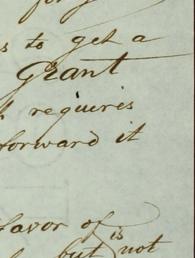 to get a
Grant
requires
forward it
favor of is
but not